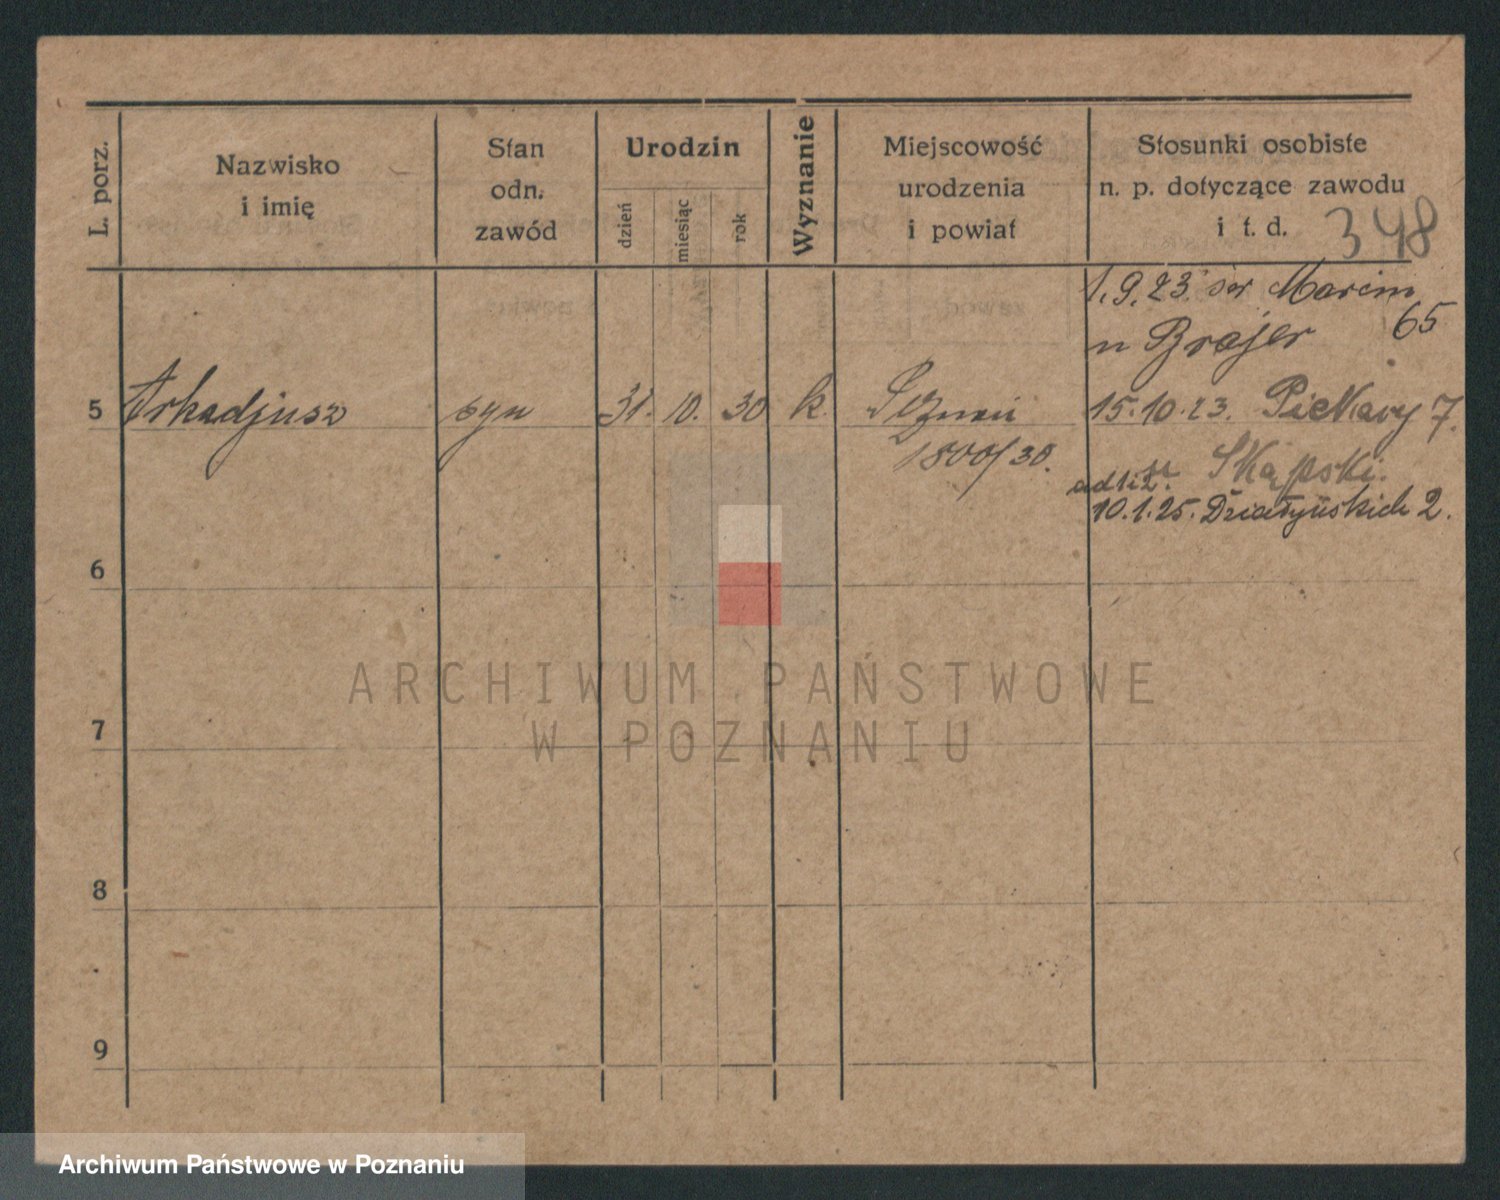 L. porz.
Nazwisko
i imię
Stan
odn.
zawód
Urodzin
dzień
miesiąc
rok
Wyznanie
Miejscowość
urodzenia
i powiat
Stosunki osobiste
n. p. dotyczące zawodu
i t. d.
348
1.9.23. św Marcin
65
u Brajer
5 Arkadjusz syn 31. 10. 30 k. Poznań 15.10.23. Piekary 7.
1800/30. Skąpski.
10.1.25. Działyńskich 2.
6
7
8
9
ARCHIWUM PAŃSTWOWE
W POZNANIU
Archiwum Państwowe w Poznaniu